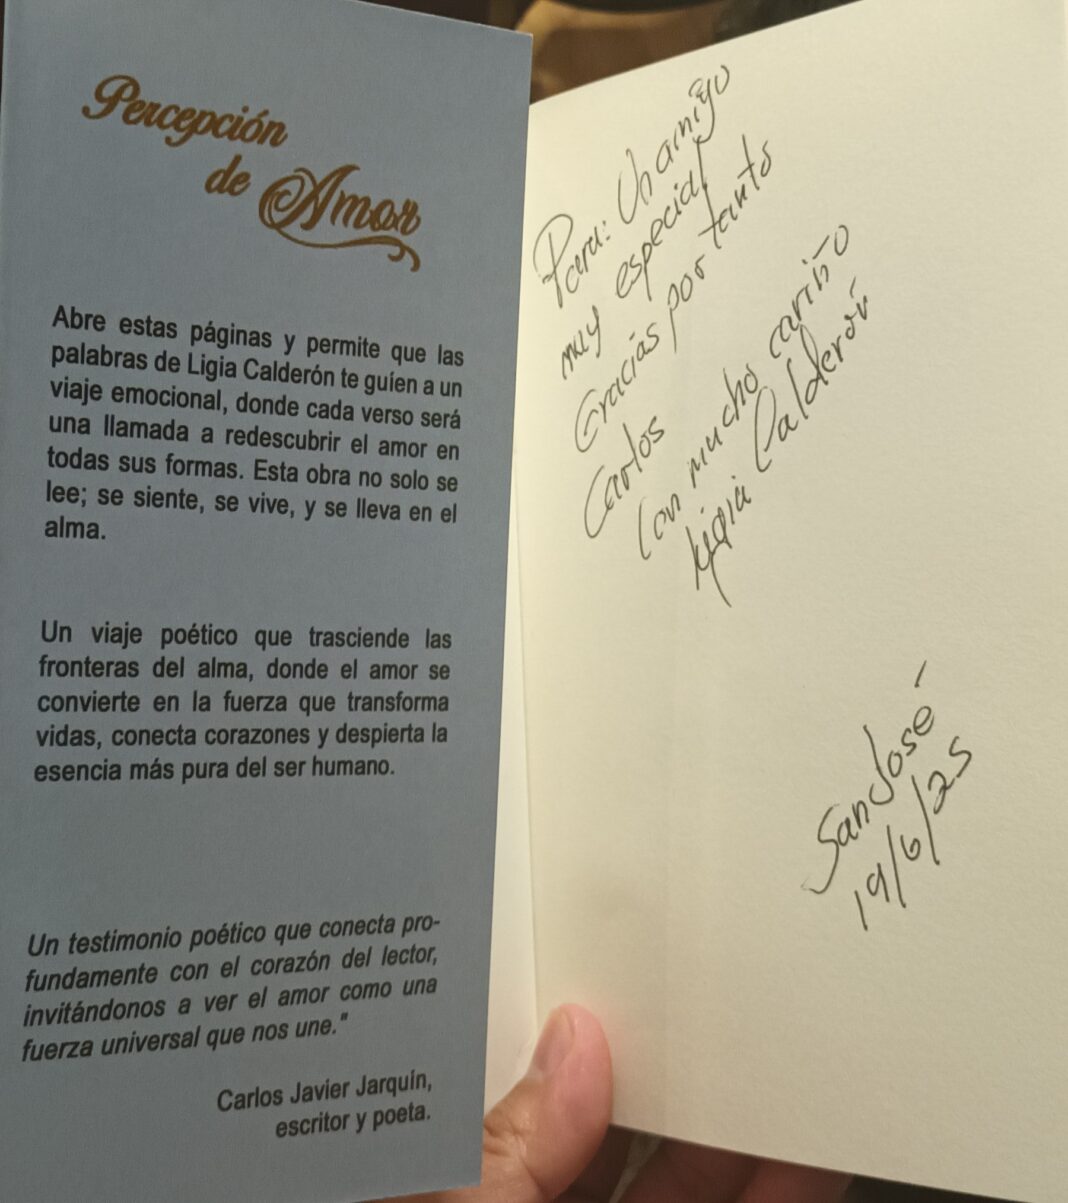 Percepción
de Amor
Abre estas páginas y permite que las
palabras de Ligia Calderón te guíen a un
viaje emocional, donde cada verso será
una llamada a redescubrir el amor en
todas sus formas. Esta obra no solo se
lee; se siente, se vive, y se lleva en el
alma.
Un viaje poético que trasciende las
fronteras del alma, donde el amor se
convierte en la fuerza que transforma
vidas, conecta corazones y despierta la
esencia más pura del ser humano.
Un testimonio poético que conecta pro-
fundamente con el corazón del lector,
invitándonos a ver el amor como una
fuerza universal que nos une."
Carlos Javier Jarquín,
escritor y poeta.
Para: Un amigo
muy especial
Gracias por tanto
Carlos
Con mucho cariño
Ligia Calderón
San José
19/6/25